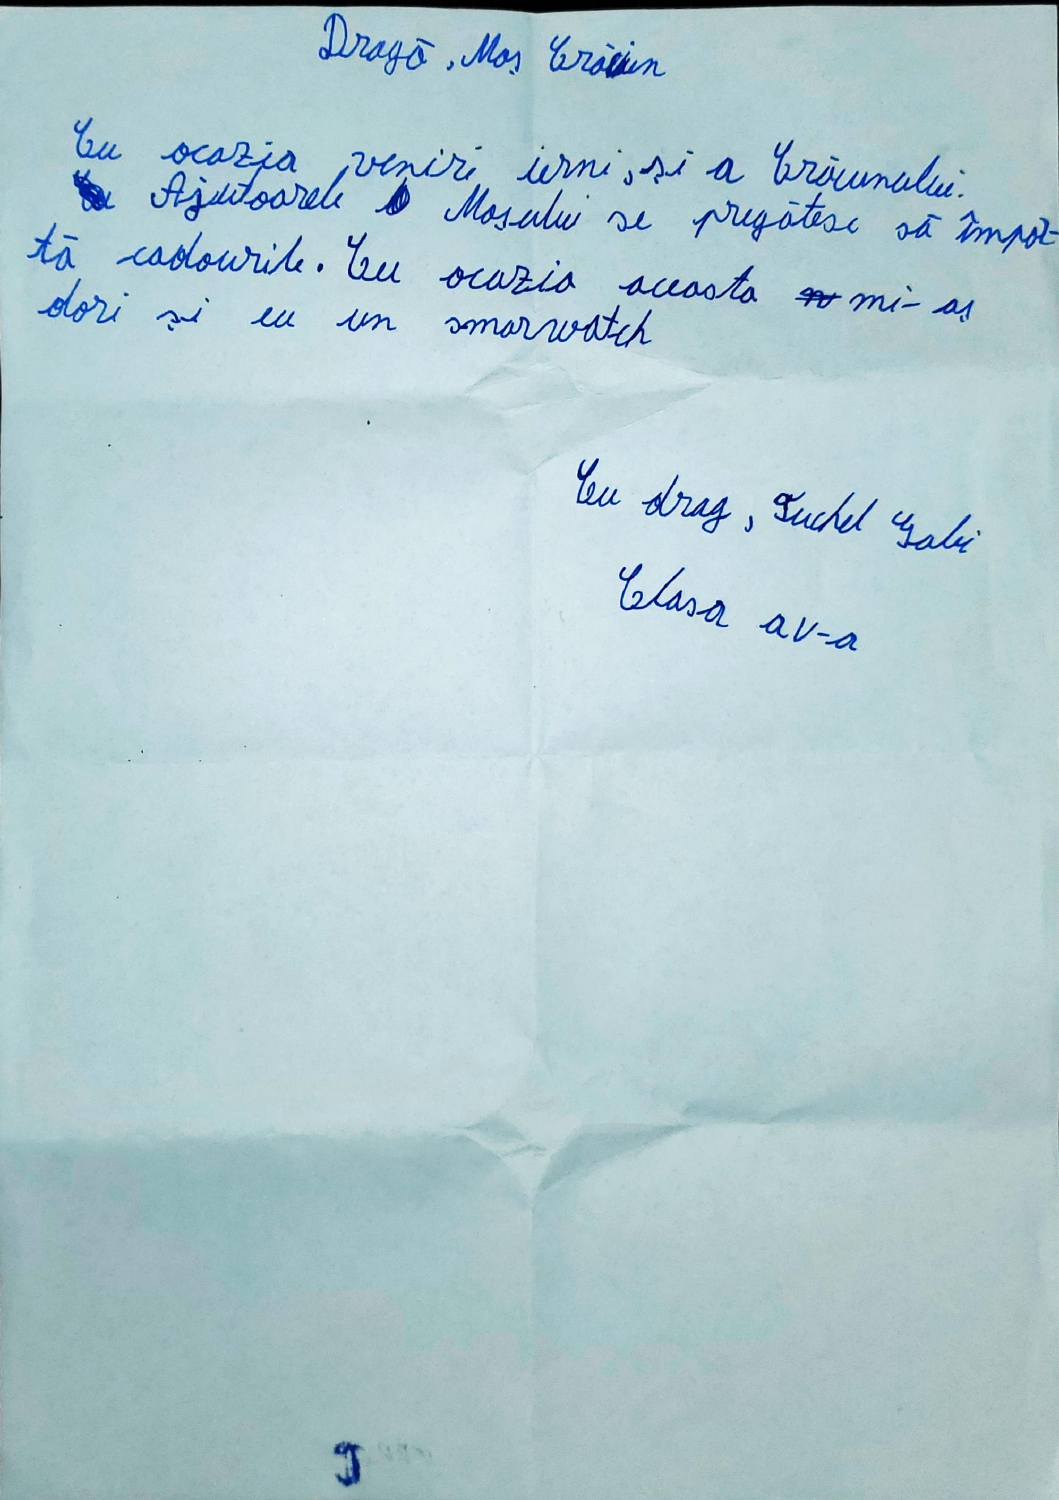 Dragă, Moș Crăciun
Cu ocazia veniri ierni, și a Crăciunului.
Ajutoarele Moșului se pregătesc să împar-
tă cadourile. Cu ocazia aceasta mi-aș
dori și eu un smarwatch
Cu drag, Tuchel Gabi
Clasa a V-a